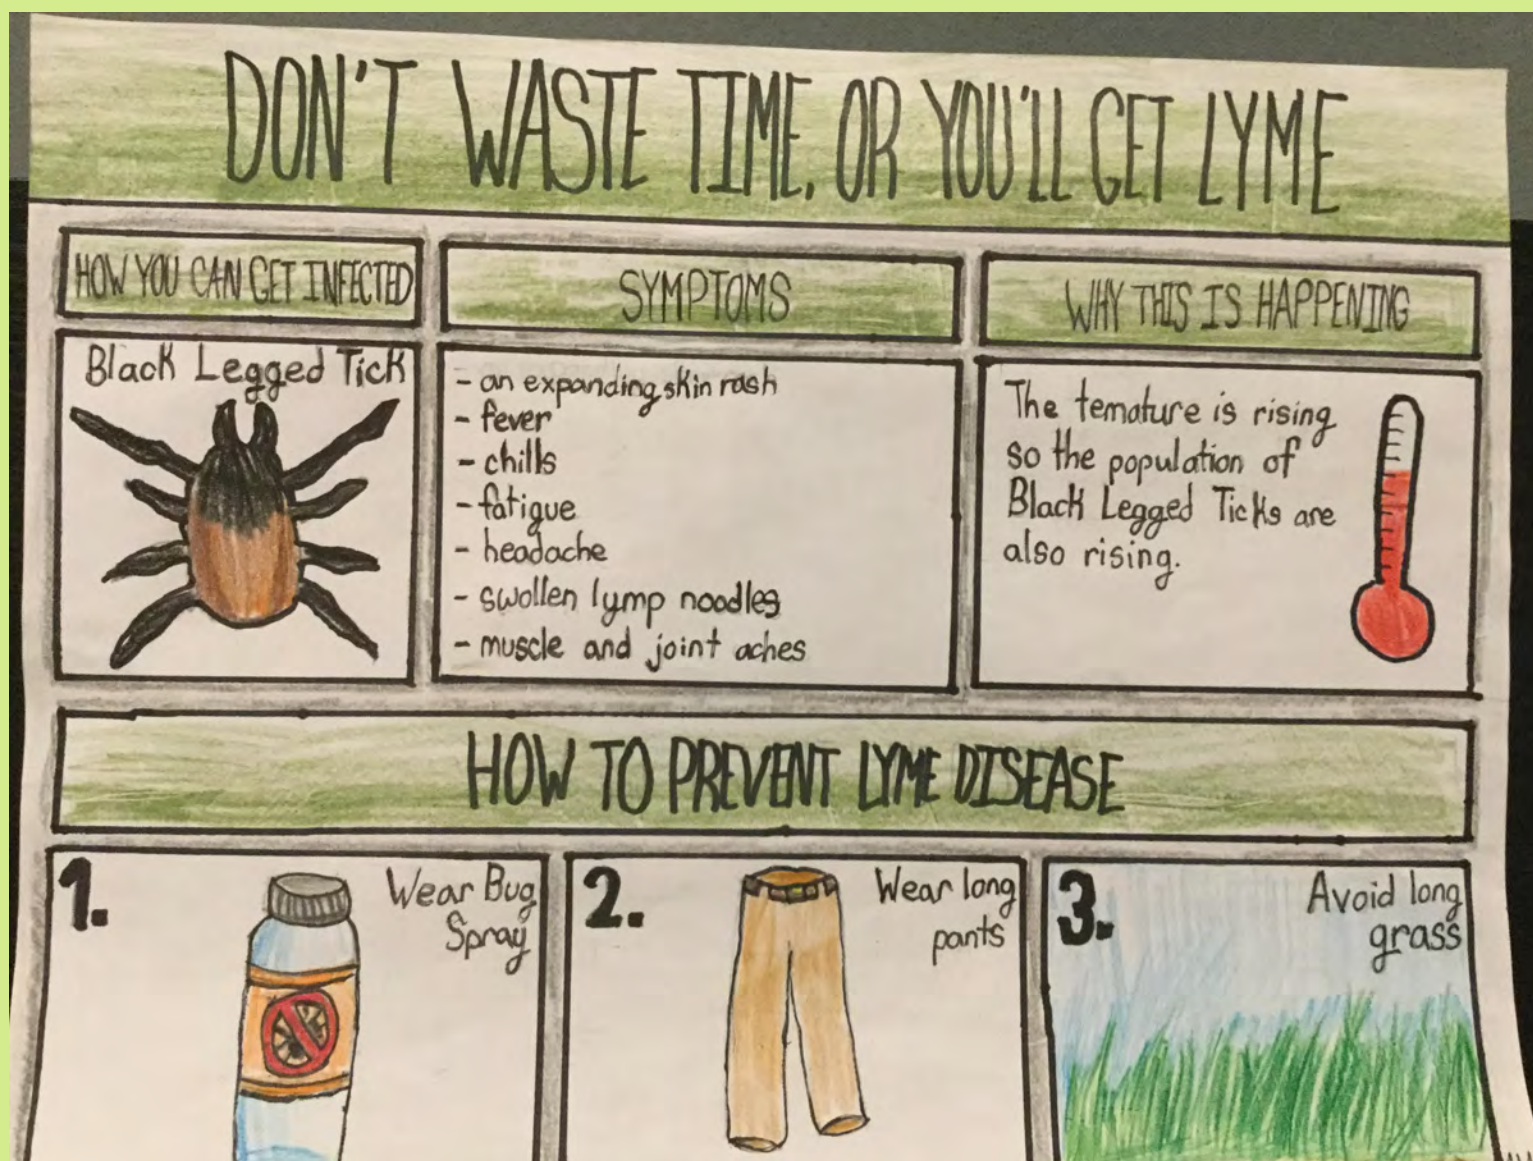 DON'T WASTE TIME, OR YOU'LL GET LYME
HOW YOU CAN GET INFECTED
Black Legged Tick
SYMPTOMS
- an expanding skin rash
- fever
- chills
- fatigue
- headache
- swollen lymp noodles
- muscle and joint aches
WHY THIS IS HAPPENING
The temature is rising
so the population of
Black Legged Ticks are
also rising.
HOW TO PREVENT LYME DISEASE
1.
Wear Bug
Spray
2.
Wear long
pants
3.
Avoid long
grass